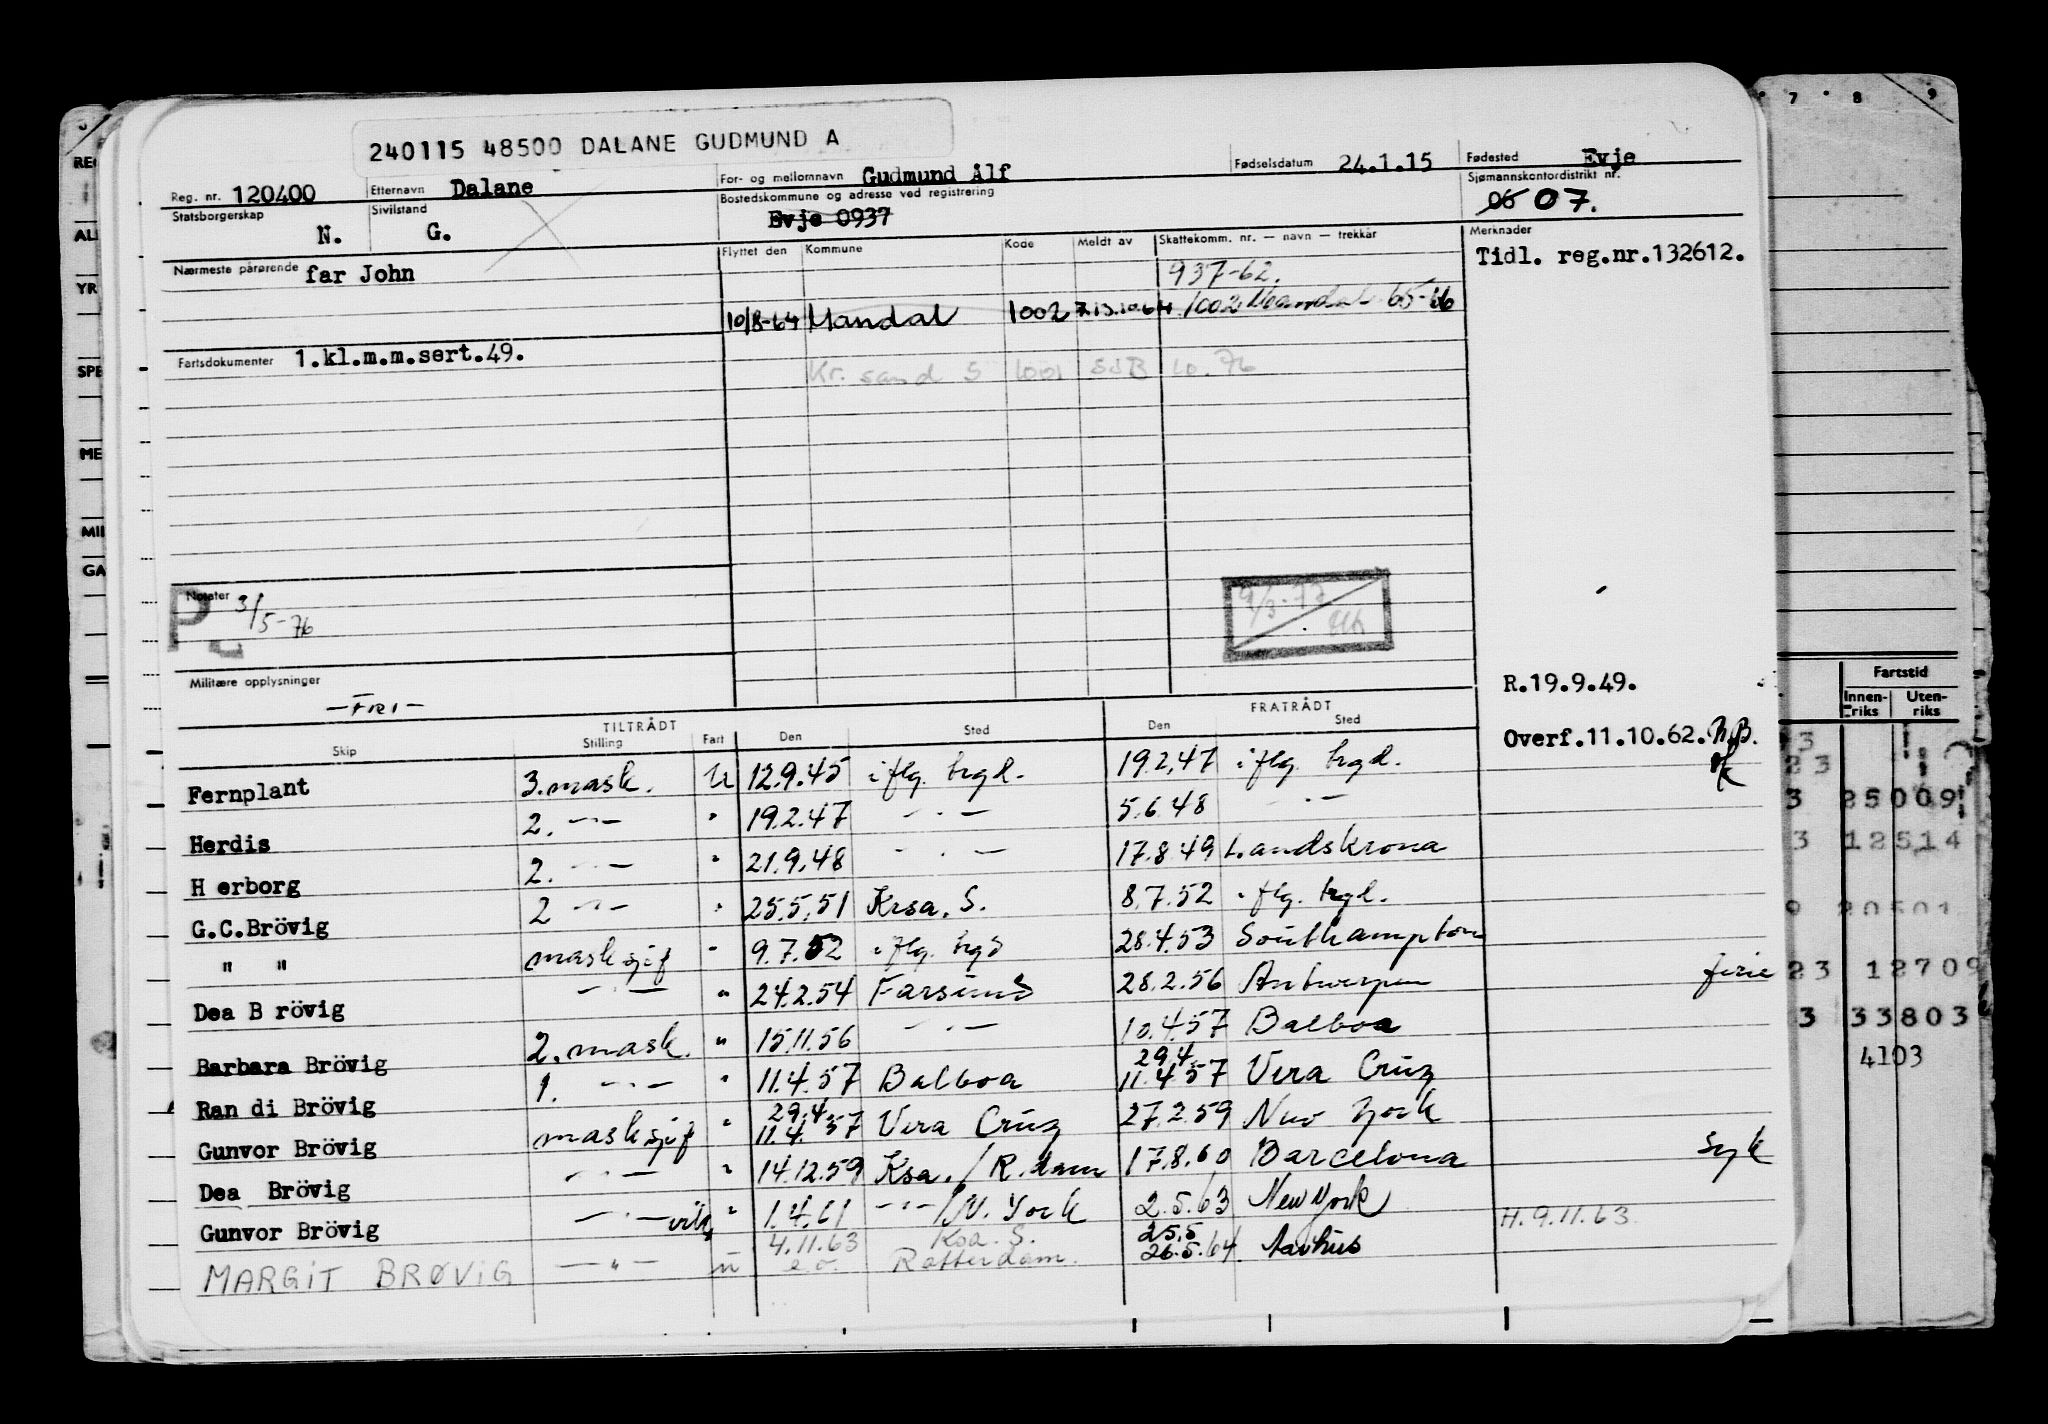 240115 48500 DALANE GUDMUND A
Reg. nr. 120400 Etternavn Dalane For- og mellomnavn Gudmund Alf Fødselsdatum 24.1.15 Fødested Evje
Statsborgerskap N. Sivilstand G. Bostedskommune og adresse ved registrering Evje 0937 Sjømannskontordistrikt nr. 06 07.
Nærmeste pårørende far John Flyttet den Kommune Kode Meldt av Skattekomm. nr. — navn — trekkår Merknader
937-62. Tidl. reg.nr.132612.
10/8-64 Mandal 1002 1002 Mandal 65-66
Fartsdokumenter 1.kl.m.m.sert.49.
Kr. sand S 1001 SSB 10.76
Notater 3/5-76
Militære opplysninger R.19.9.49.
-FRI-
TILTRÅDT FRATRÅDT
Skip Stilling Fart Den Sted Den Sted Overf.11.10.62.
Fernplant 3.mask. U 12.9.45 iflg. trgd. 19.2.47 iflg. trgd.
2. -"- " 19.2.47 - " - 5.6.48 - " -
Herdis 2. -"- " 21.9.48 - " - 17.8.49 Landskrona
Herborg 2 -"- " 25.5.51 Krsa. S. 8.7.52 iflg. trgd.
G.C.Brövig masksjef " 9.7.52 iflg. trgd 28.4.53 Southampton
" " -"- " 24.2.54 Farsund 28.2.56 Antwerpen ferie
Dea Brövig 2. mask. " 15.11.56 - " - 10.4.57 Balboa
Barbara Brövig 1. -"- " 11.4.57 Balboa 29.4. 11.4.57 Vera Cruz
Randi Brövig masksjef " 29.4. 11.4.57 Vera Cruz 27.2.59 New York
Gunvor Brövig -"- " 14.12.59 Ksa. / R.dam 17.8.60 Barcelona syk
Dea Brövig -"- " 1.4.61 -"- / N. York 2.5.63 New York
Gunvor Brövig 4.11.63 Ksa. S. 25.5 H.9.11.63
MARGIT BRØVIG -"- u e.o. Rotterdam. 26.5.64 Aarhus
7 8 9
Fartstid
Innenriks Utenriks
25009
12514
20501
12709
33803
4103